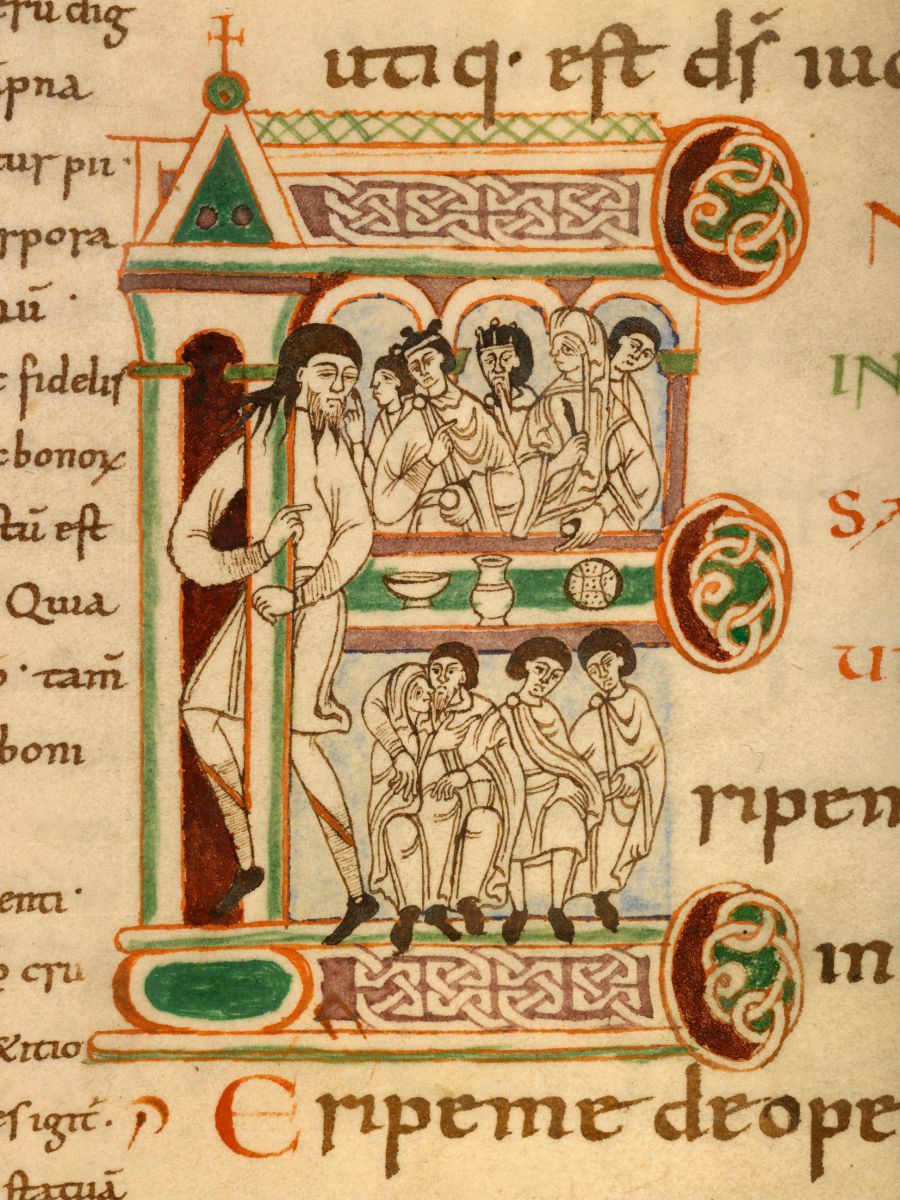 eru dig
ipna
tur pii·
rpora
nū ·
c fidelis
c bonoꝝ
ctū est
Quia
tam̄
boni
enti·
cru
exitio
es igit̄·
statuā
utiq· est ds̄ iud
N
IN
S
UT
ripem
in
Eripe me de ope